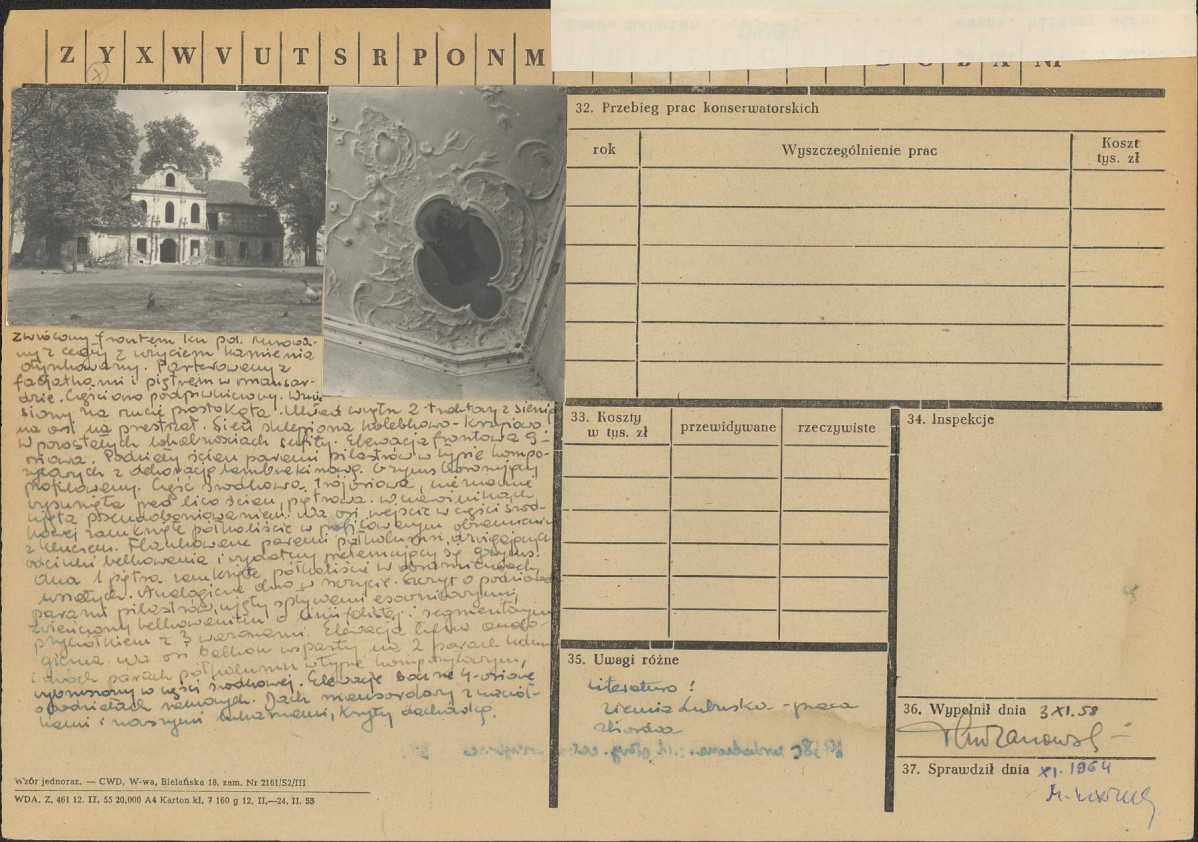 Z Y X W V U T S R P O N M
32. Przebieg prac konserwatorskich
rok
Wyszczególnienie prac
Koszt
tys. zł
zwrócony frontem ku poł. Murowa-
ny z cegły z użyciem kamienia
otynkowany. Parterowany z
facjatkami i piętrem w mansar-
dzie. Częściowo podpiwniczony. Wznie
siony na rzucie prostokąta. Układ wnętrz 2-traktowy z sienią
na osi na przestrzał. Sień sklepiona kolebkowo-krzyżowo,
w pozostałych lokalnościach sufity. Elewacja frontowa 9-
osiowa. Podziały ścian parami pilastrów w typie kompo-
zytowych z dekoracją lambrekinową. Gzyms koronujący
profilowany. Część środkowa trójosiowa, nieznacznie
wysunięta przed lico ścian, piętrowa. W narożnikach
ujęta pseudoboniowaniem. Na osi wejście w części środ-
kowej zamknięte półkoliście w profilowanym obramieniu
z kluczem. Flankowane parami półkolumn, dźwigających
odcinki belkowania i wydatny przełamujący się gzyms.
Okna 1 piętra zamknięte półkoliście w obramieniach
uszatych. Analogiczne okno w szczycie. Szczyt o podziałach
parami pilastrów, ujęty spływami esownicowymi,
zwieńczony belkowaniem o linii falistej i segmentowym
przyczółkiem z 3 wazonami. Elewacja tylna analo-
giczna. Na osi balkon wsparty na 2 parach kolumn
i dwóch parach półkolumn w typie kompozytowym,
wysunięty w części środkowej. Elewacje boczne 4-osiowe
o podziałach ramowych. Dach mansardowy z naczół-
kami i lukarnami, kryty dachówką.
33. Koszty
w tys. zł
przewidywane
rzeczywiste
34. Inspekcje
35. Uwagi różne
Literatura:
Ziemia Lubuska - praca
zbiorowa
36. Wypełnił dnia 3 XI. 58
37. Sprawdził dnia XI. 1964
Wzór jednoraz. — CWD, W-wa, Bielańska 18, zam. Nr 2161/S2/III
WDA. Z. 461 12. II. 55 20.000 A4 Karton kl. 7 160 g 12. II.—24. II. 53